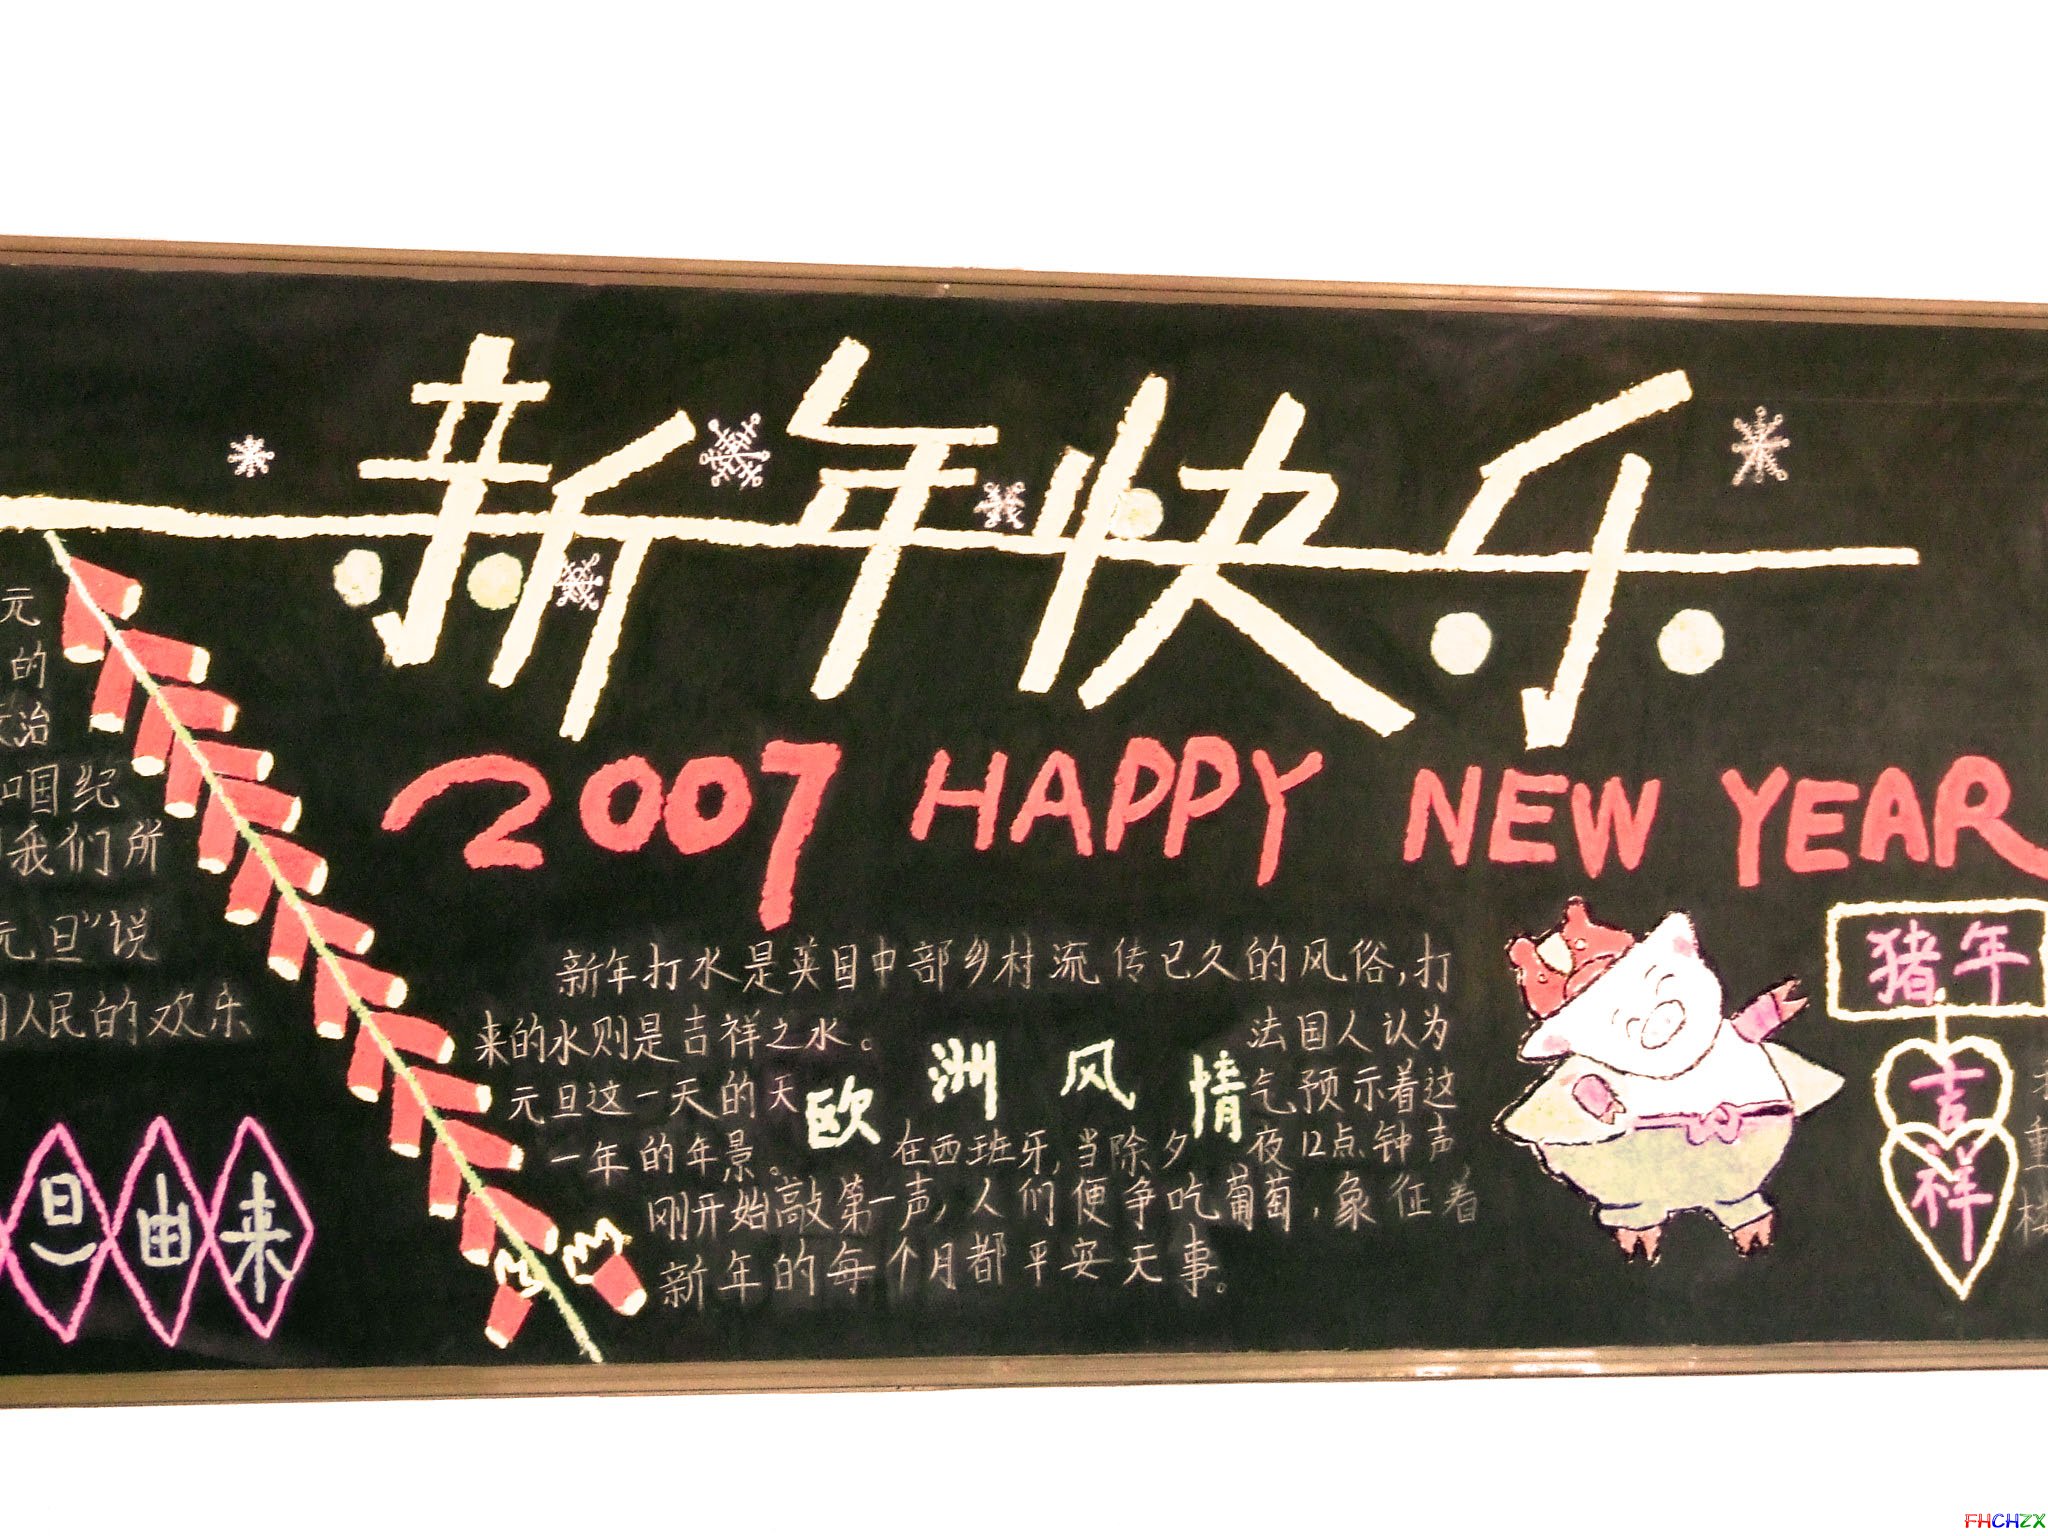 新年快乐
2007 HAPPY NEW YEAR
元
的
治
国纪
我们所
元旦"说
人民的欢乐
旦由来
新年打水是英国中部乡村流传已久的风俗,打
来的水则是吉祥之水。 法国人认为
元旦这一天的天 气预示着这
一年的年景。 在西班牙,当除夕 夜12点钟声
欧洲风情
刚开始敲第一声,人们便争吃葡萄,象征着
新年的每个月都平安无事。
猪年
吉
祥
重
FHCHZX